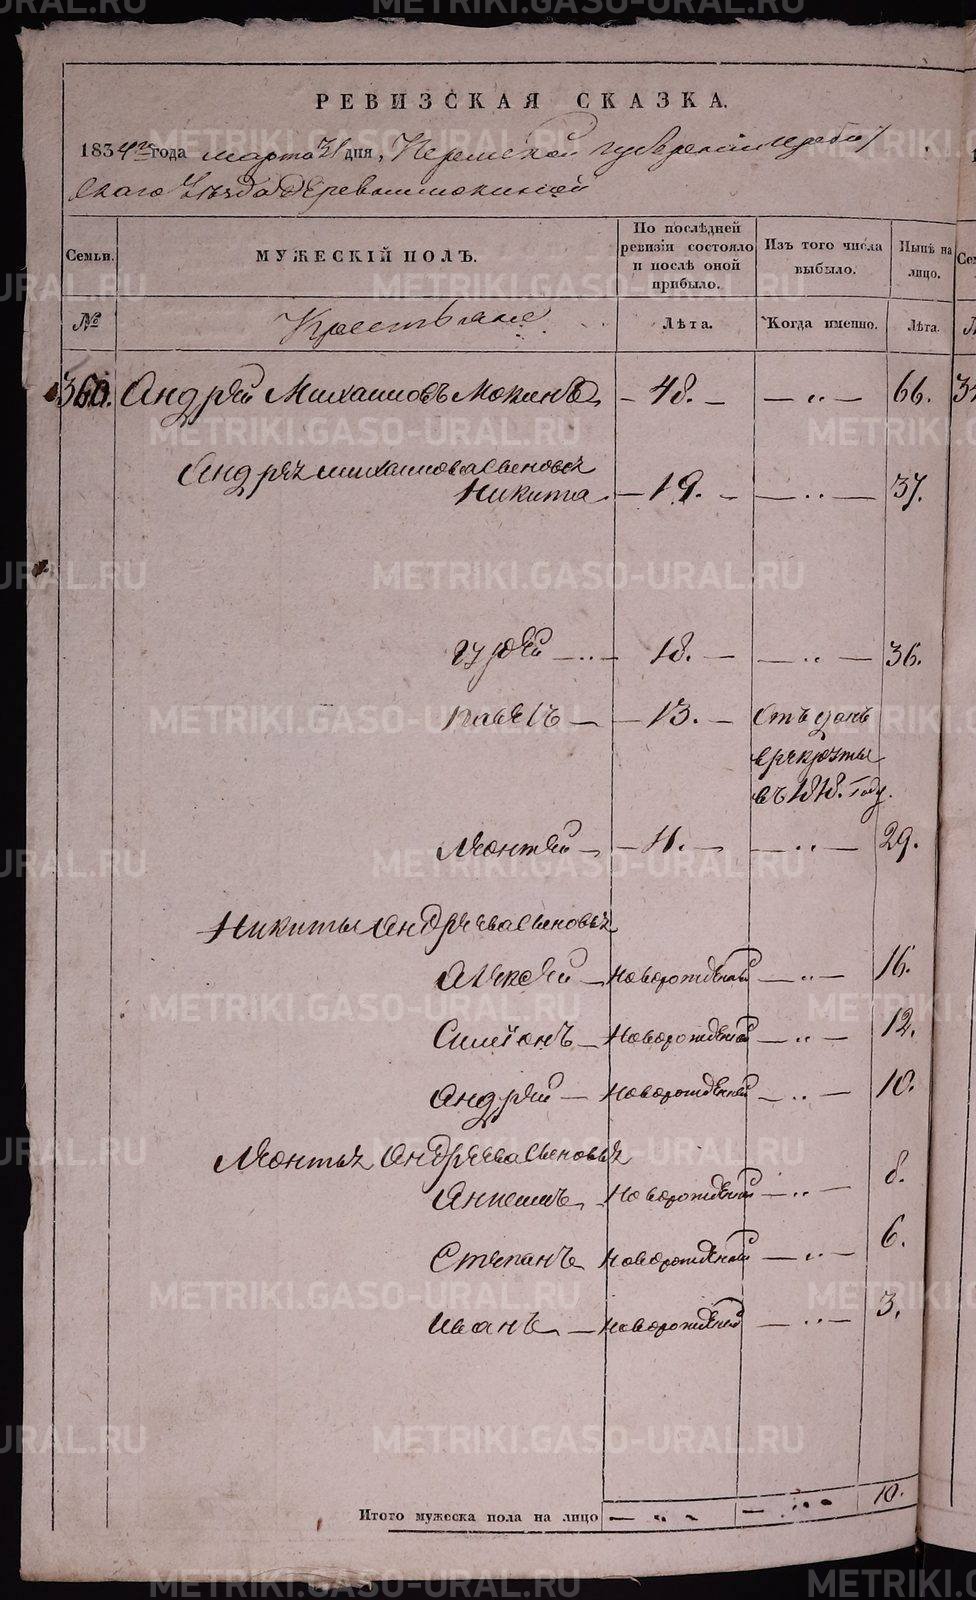 РЕВИЗСКАЯ СКАЗКА.
1834го года марта 31 дня, Пермской губернии Ирбит
скаго Уезда деревни мокиной
Семьи.
МУЖЕСКІЙ ПОЛЪ.
По послѣдней ревизіи состояло и послѣ оной прибыло.
Изъ того числа выбыло.
Нынѣ на лицо.
№
Крестьяне
Лѣта.
Когда именно.
Лѣта.
360. Андрей Михаиловъ Мокинъ — 48. — — „ — 66.
Андрея михаилова сыновья
Никита — 19. — — „ — 37.
Гурей — „ — 18. — — „ — 36.
павелъ — — 13. — Отъ данъ
в рекруты
въ 1818. году.
Леонтей — — 11. — — „ — 29.
Никиты Андреева сыновья
Алексей — новорожденной — „ — 16.
Симионъ — новорожденной — „ — 12.
Андрей — новорожденной — „ — 10.
Леонтья Андреева сыновья
новорожденной — „ — 8.
Степанъ новорожденной — „ — 6.
Иванъ — новорожденной — „ — 3.
Итого мужеска пола на лицо — „ — — „ — 10.
METRIKI.GASO-URAL.RU